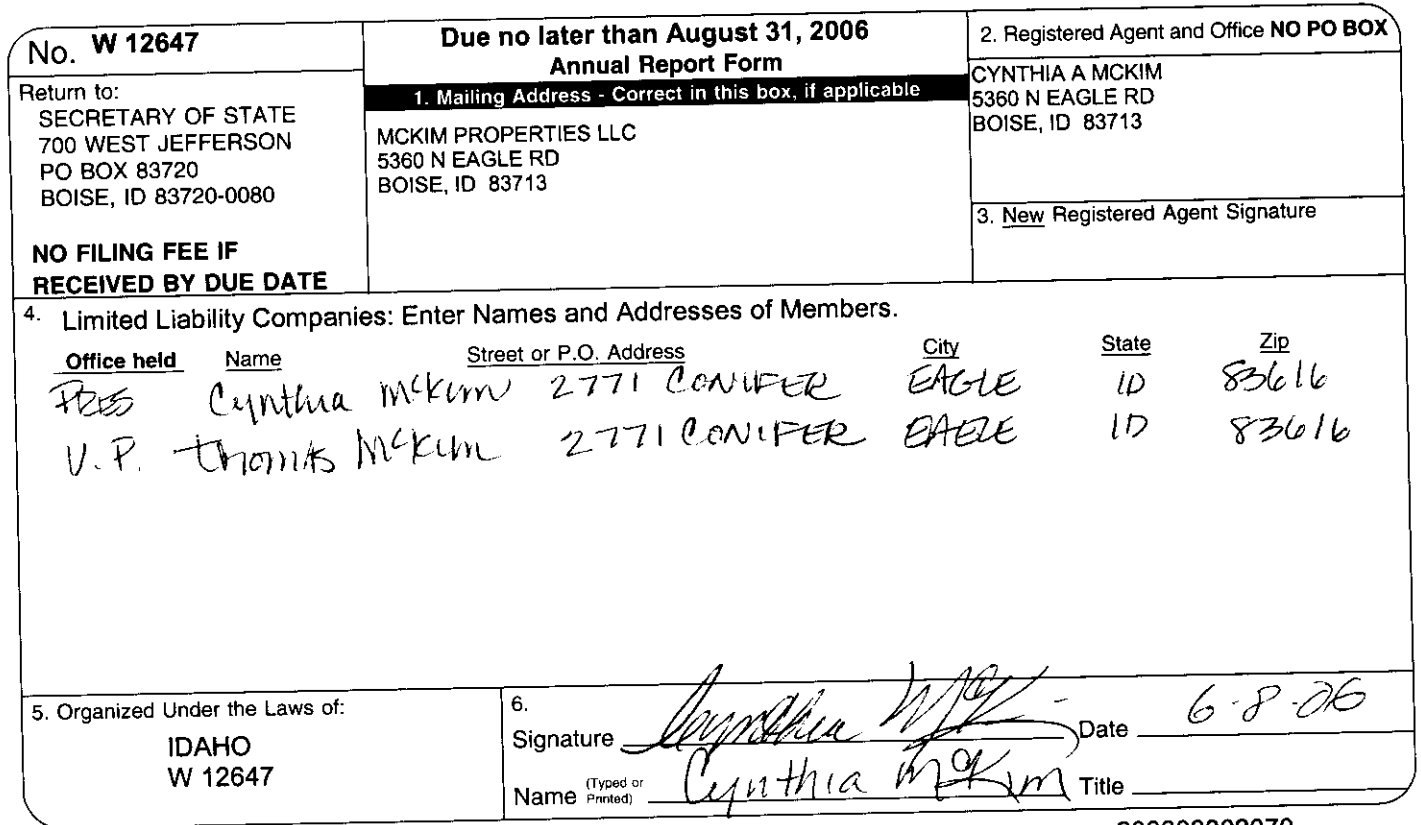 No. W 12647
Return to:
SECRETARY OF STATE
700 WEST JEFFERSON
PO BOX 83720
BOISE, ID 83720-0080
NO FILING FEE IF
RECEIVED BY DUE DATE
Due no later than August 31, 2006
Annual Report Form
1. Mailing Address - Correct in this box, if applicable
MCKIM PROPERTIES LLC
5360 N EAGLE RD
BOISE, ID 83713
2. Registered Agent and Office NO PO BOX
CYNTHIA A MCKIM
5360 N EAGLE RD
BOISE, ID 83713
3. New Registered Agent Signature
4. Limited Liability Companies: Enter Names and Addresses of Members.
Office held Name Street or P.O. Address City State Zip
PRES Cynthia McKim 2771 CONIFER EAGLE ID 83616
V.P. Thomas McKim 2771 CONIFER EAGLE ID 83616
5. Organized Under the Laws of:
IDAHO
W 12647
6.
Signature Cynthia McK Date 6-8-06
Name (Typed or Printed) Cynthia McKim Title